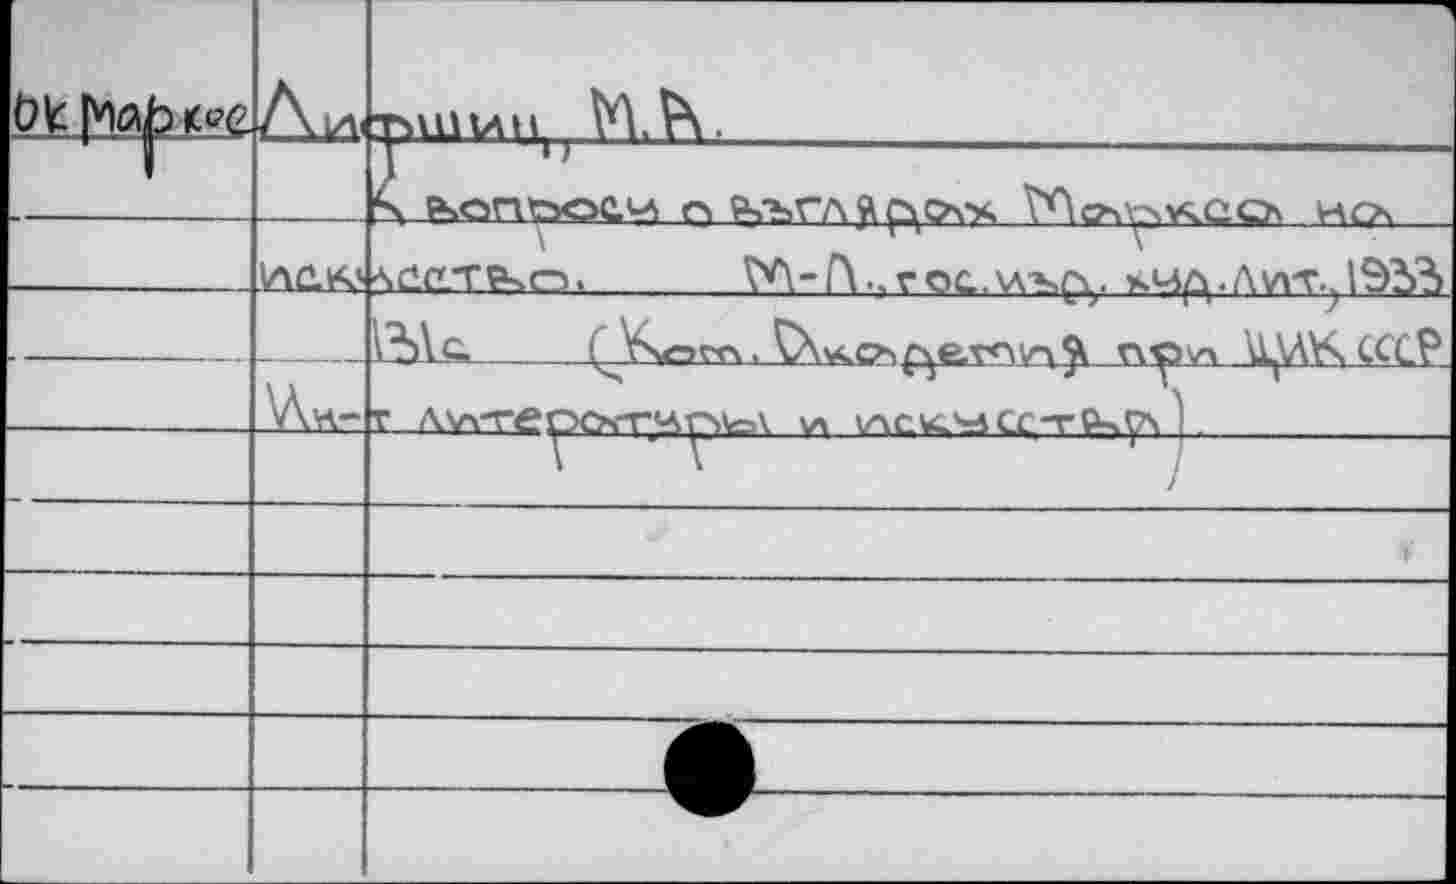 ок Марксе Лифшиц, М.А.
К вопросу о взглядах Маркса на
искусство. М-Л., гос. изд. худ. лит., 1933
131с. (Ком. Академия при ЦИК СССР
Ин-т литературы и искусства).